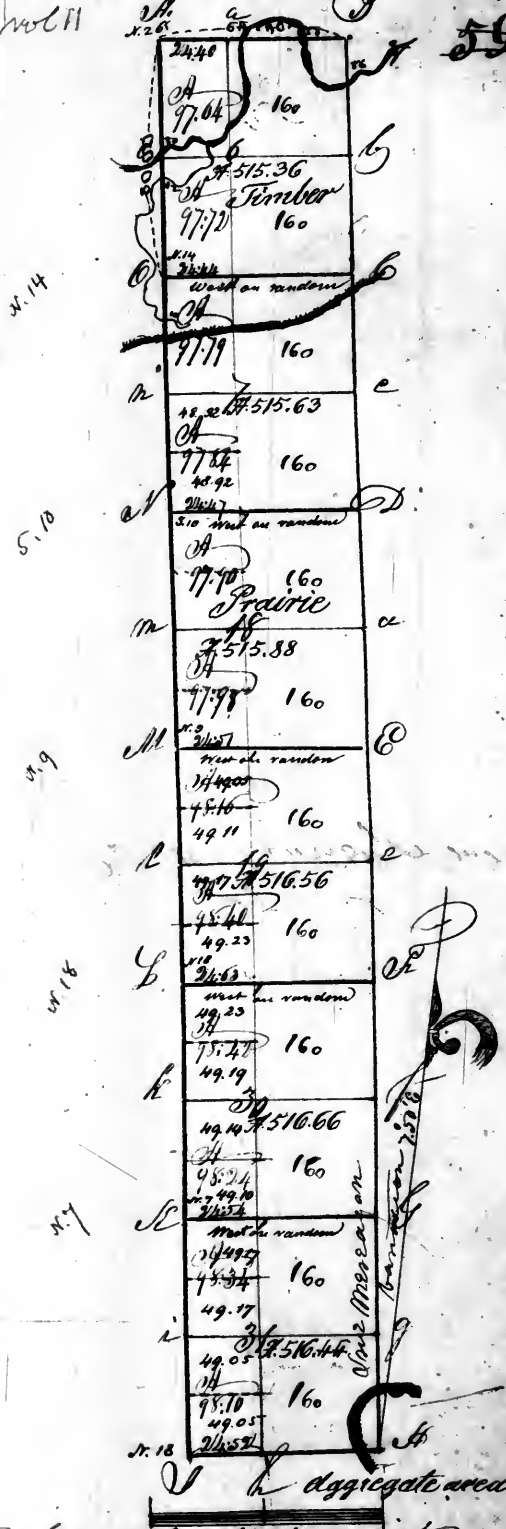 A.
a
N. 26
24:40
A
97.64
160
6
b
A. 515.36
Timber
A
97:72
160
N. 14
N.14
24:44
O
C
West on random
A
97.79
160
n
c
7
A. 515.63
48.92
A
97 84
160
48.92
24:47
N
D
5.10
S.10 West on random
A
97.90
160
Prairie
m
18
a
A. 515.88
A
97.98
160
N. 9
N.9
24:51
M
E
West on random
A 49.05
98:16
160
49.11
l
19
e
49.17
A. 516.56
A
98:40
160
49.23
N. 18
N 18
24:63
L
West on random
49.23
A
98:42
160
49.19
k
30
49.14
A. 516.66
A
98:24
160
N. 7
N. 7 49.10
24:54
K
West on random
A 49.17
98:34
160
49.17
i
31
g
49.05
A. 516.44
A
98:10
160
49.05
24:52
N. 18
H
True Meridian
variation 7.50 E
h
aggregate area